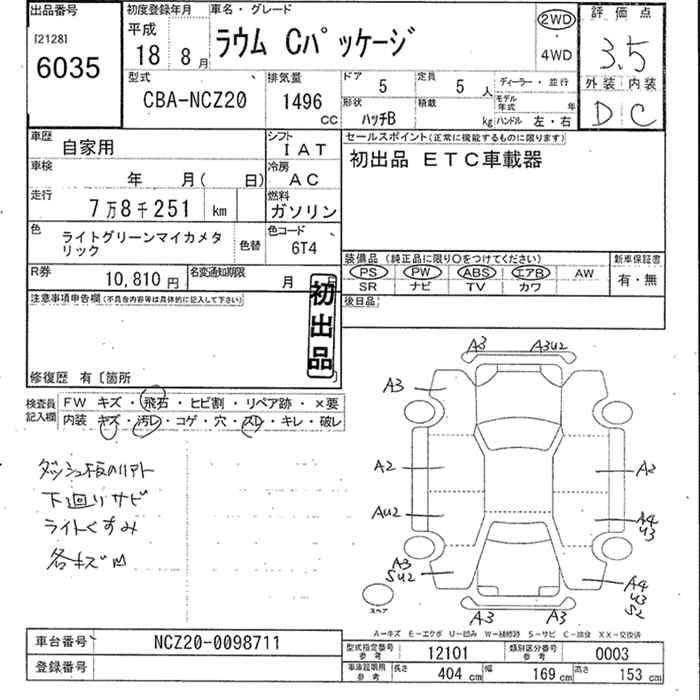 出品番号
[2128]
6035
初度登録年月
平成
18 8月
車名・グレード
ラウム Cパッケージ
2WD
4WD
評価点
3.5
外装 内装
D C
型式
CBA-NCZ20
排気量
1496
CC
ドア 5
定員 5人
形状 ハッチB
積載 kg
ディーラー・並行
モデル年式 年
ハンドル 左・右
車歴 自家用
シフト IAT
車検 年 月( 日)
冷房 AC
走行 7万8千251 km
燃料 ガソリン
色 ライトグリーンマイカメタリック
色替
色コード 6T4
R券 10,810円
名変通知期限 月 日
セールスポイント(正常に機能するものに限ります)
初出品 ETC車載器
装備品(純正品に限り○をつけてください)
新車保証書
PS PW ABS エアB AW
有・無
SR ナビ TV カワ
後日品
注意事項申告欄(不具合内容等は具体的に記入して下さい)
初出品
修復歴 有〔箇所
検査員記入欄
FW キズ・飛石・ヒビ割・リペア跡・×要
内装 キズ・汚レ・コゲ・穴・スレ・キレ・破レ
下回りサビ
ライトくすみ
各キズ凹
A3 A3U2
A3
A2 A2
AU2 A4 U3
A3 SU2 A4 U3 S2
A3 A3
スペア
A-キズ E-エクボ U-凹み W-補修跡 S-サビ C-腐食 XX-交換済
車台番号 NCZ20-0098711
登録番号
型式指定番号 参考 12101
類別区分番号 参考 0003
車庫証明用 参考 長さ 404 cm 幅 169 cm 高さ 153 cm